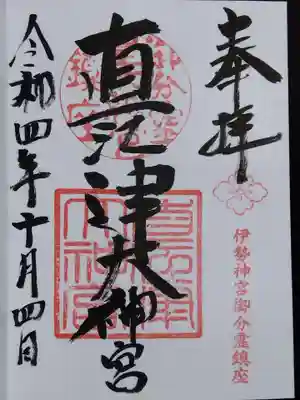 奉拝
伊勢神宮御分霊鎮座
直江津大神宮
令和四年十月四日